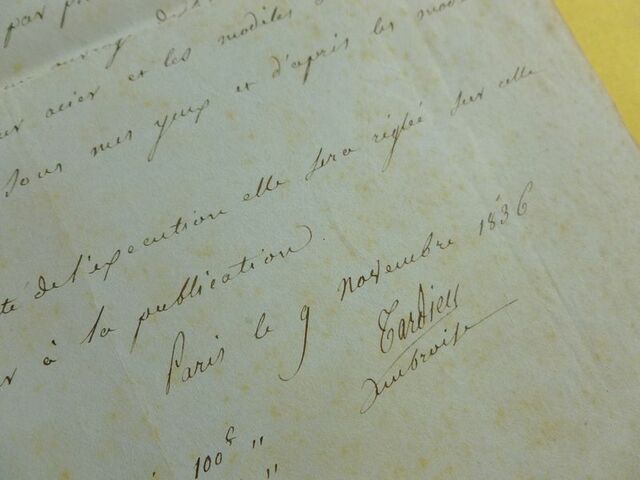 par
ouvrage
acier et les modiles
sous mes yeux et d'après les mod
té de l'execution elle sera réglée sur celle
à la publication.
Paris le 9 novembre 1836
Tardieu
Ambroise
100 "
"